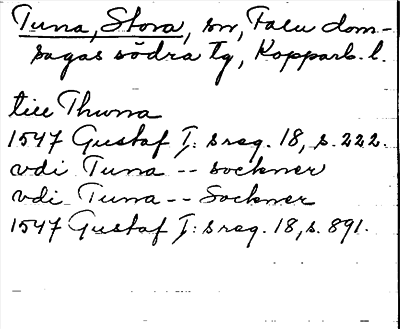 Tuna, Stora, sn, Falu dom-
sagas södra tg, Kopparb. l.
till Thuna
1547 Gustaf I: s reg. 18, s. 222.
vdi Tuna -- sockner
vdi Tuna -- Sockner
1547 Gustaf I: s reg. 18, s. 891.